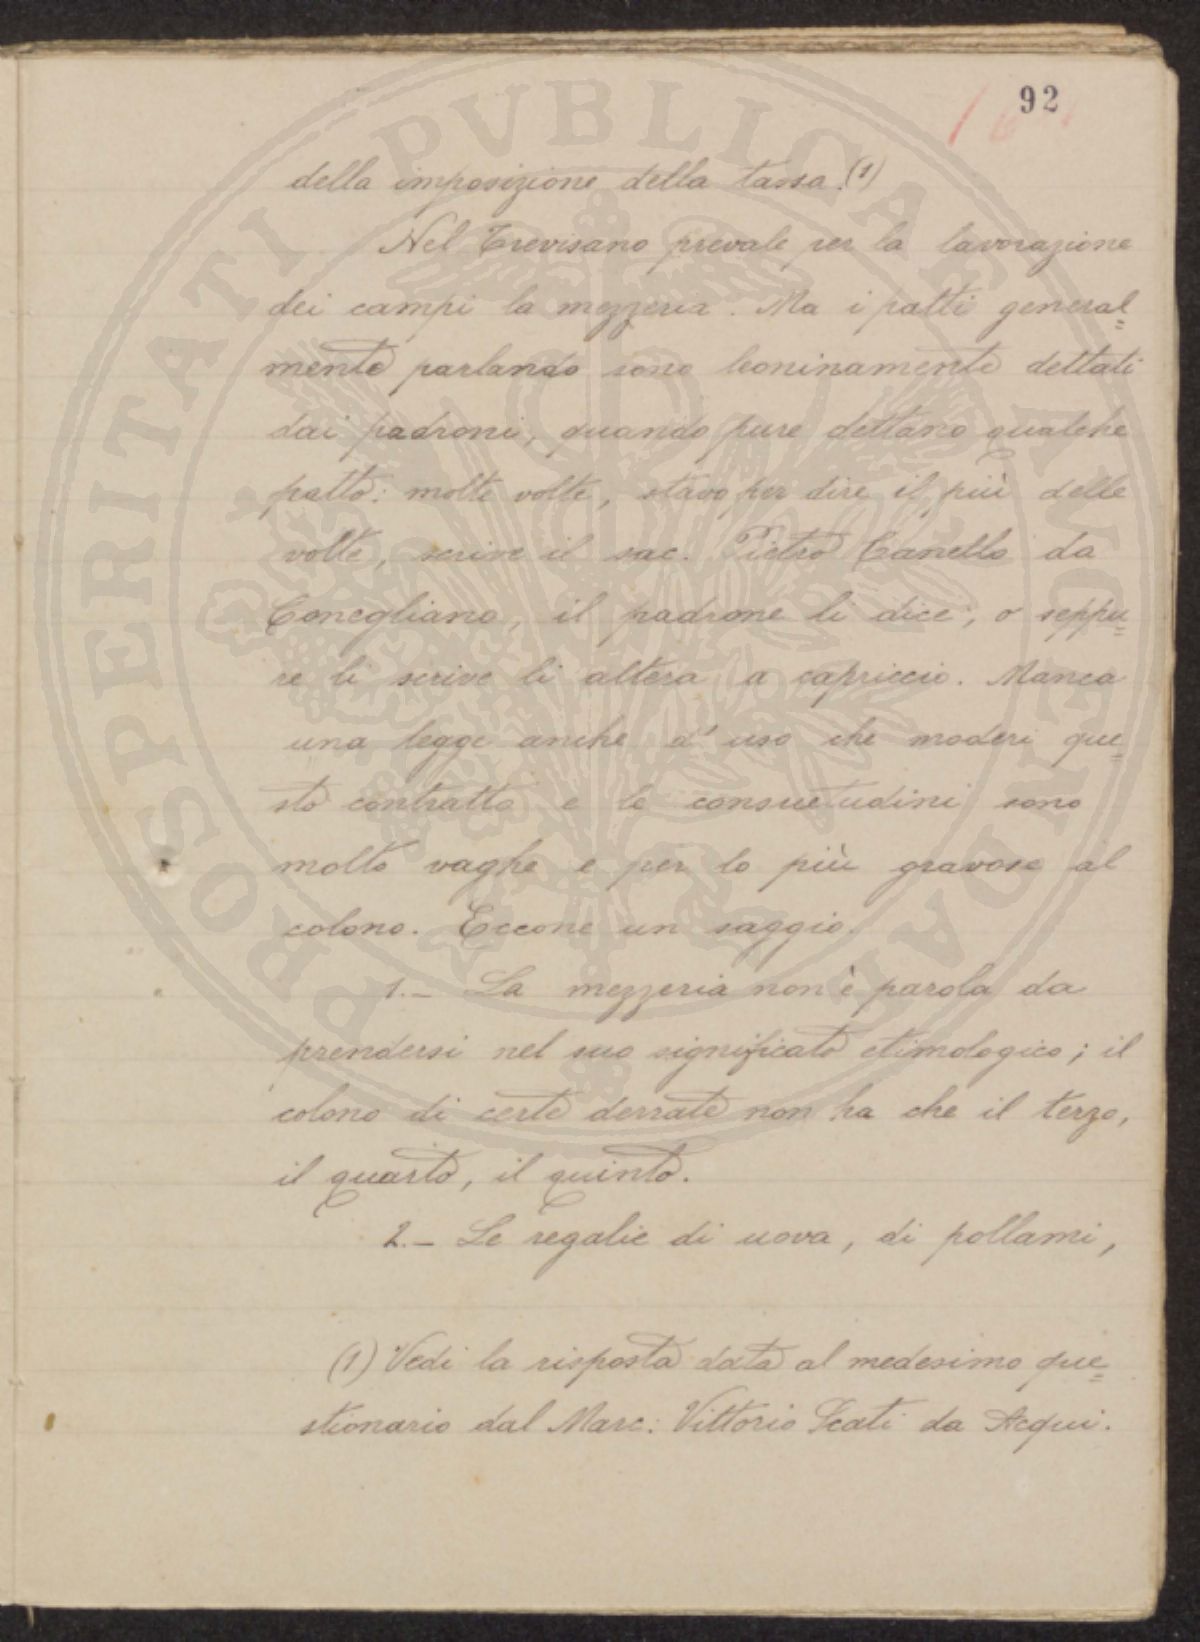 92
della imposizione della tassa.(1)
Nel Trevisano prevale per la lavorazione
dei campi la mezzeria. Ma i patti general=
mente parlando sono leoninamente dettati
dai padroni, quando pure dettano qualche
patto: molte volte, stavo per dire il più delle
volte, scrive il sac. Pietro Canello da
Conegliano, il padrone li dice; o seppu=
re li scrive li altera a capriccio. Manca
una legge anche d'uso che moderi que=
sto contratto e le consuetudini sono
molto vaghe e per lo più gravose al
colono. Eccone un saggio.
1.- La mezzeria non è parola da
prendersi nel suo significato etimologico; il
colono di certe derrate non ha che il terzo,
il quarto, il quinto.
2.- Le regalie di uova, di pollami,
(1) Vedi la risposta data al medesimo que=
stionario dal Marc: Vittorio Scati da Acqui.
PVBLICAE COMMODA PROSPERITATI